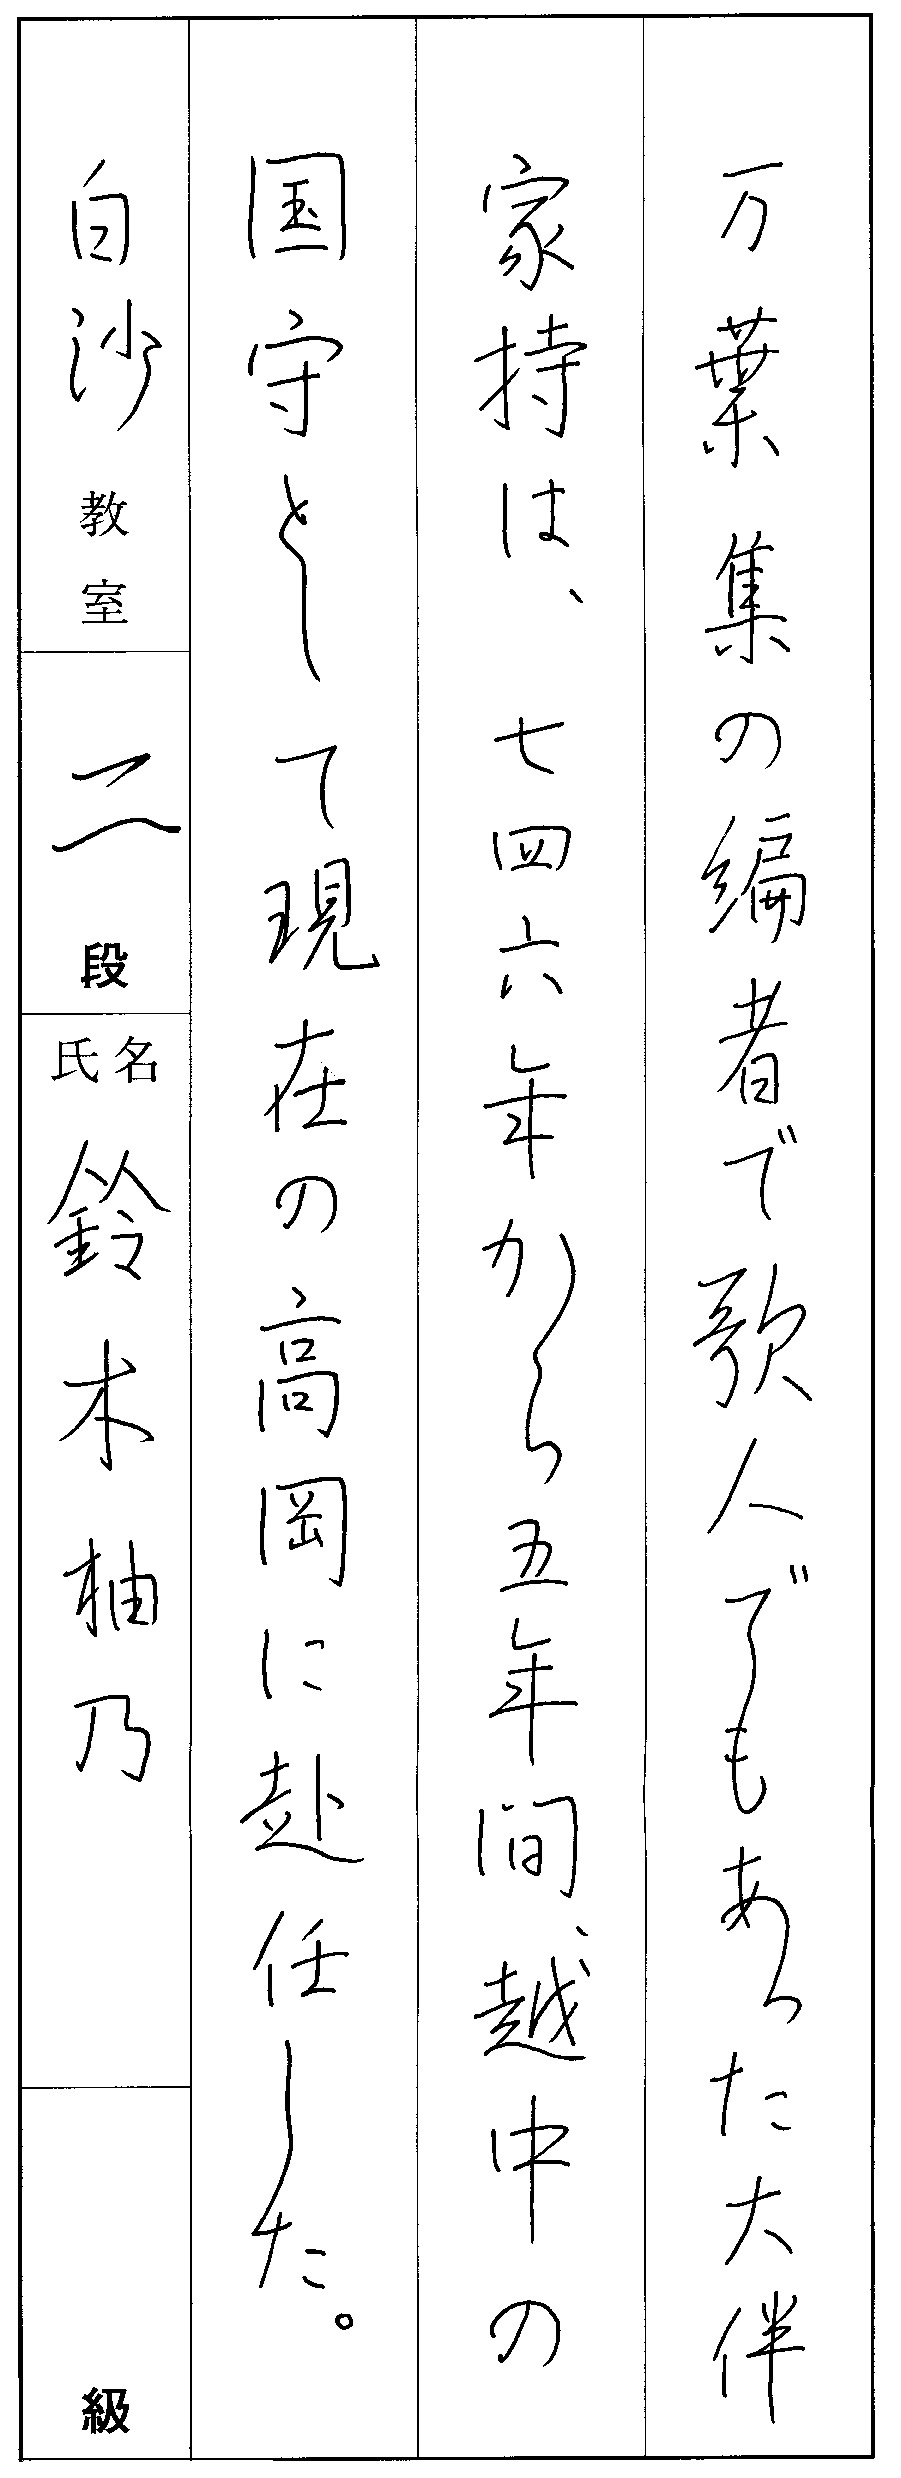 万葉集の編者で歌人でもあった大伴
家持は、七四六年から五年間、越中の
国守として現在の高岡に赴任した。
白沙教室
二段
氏名
鈴木柚乃
級